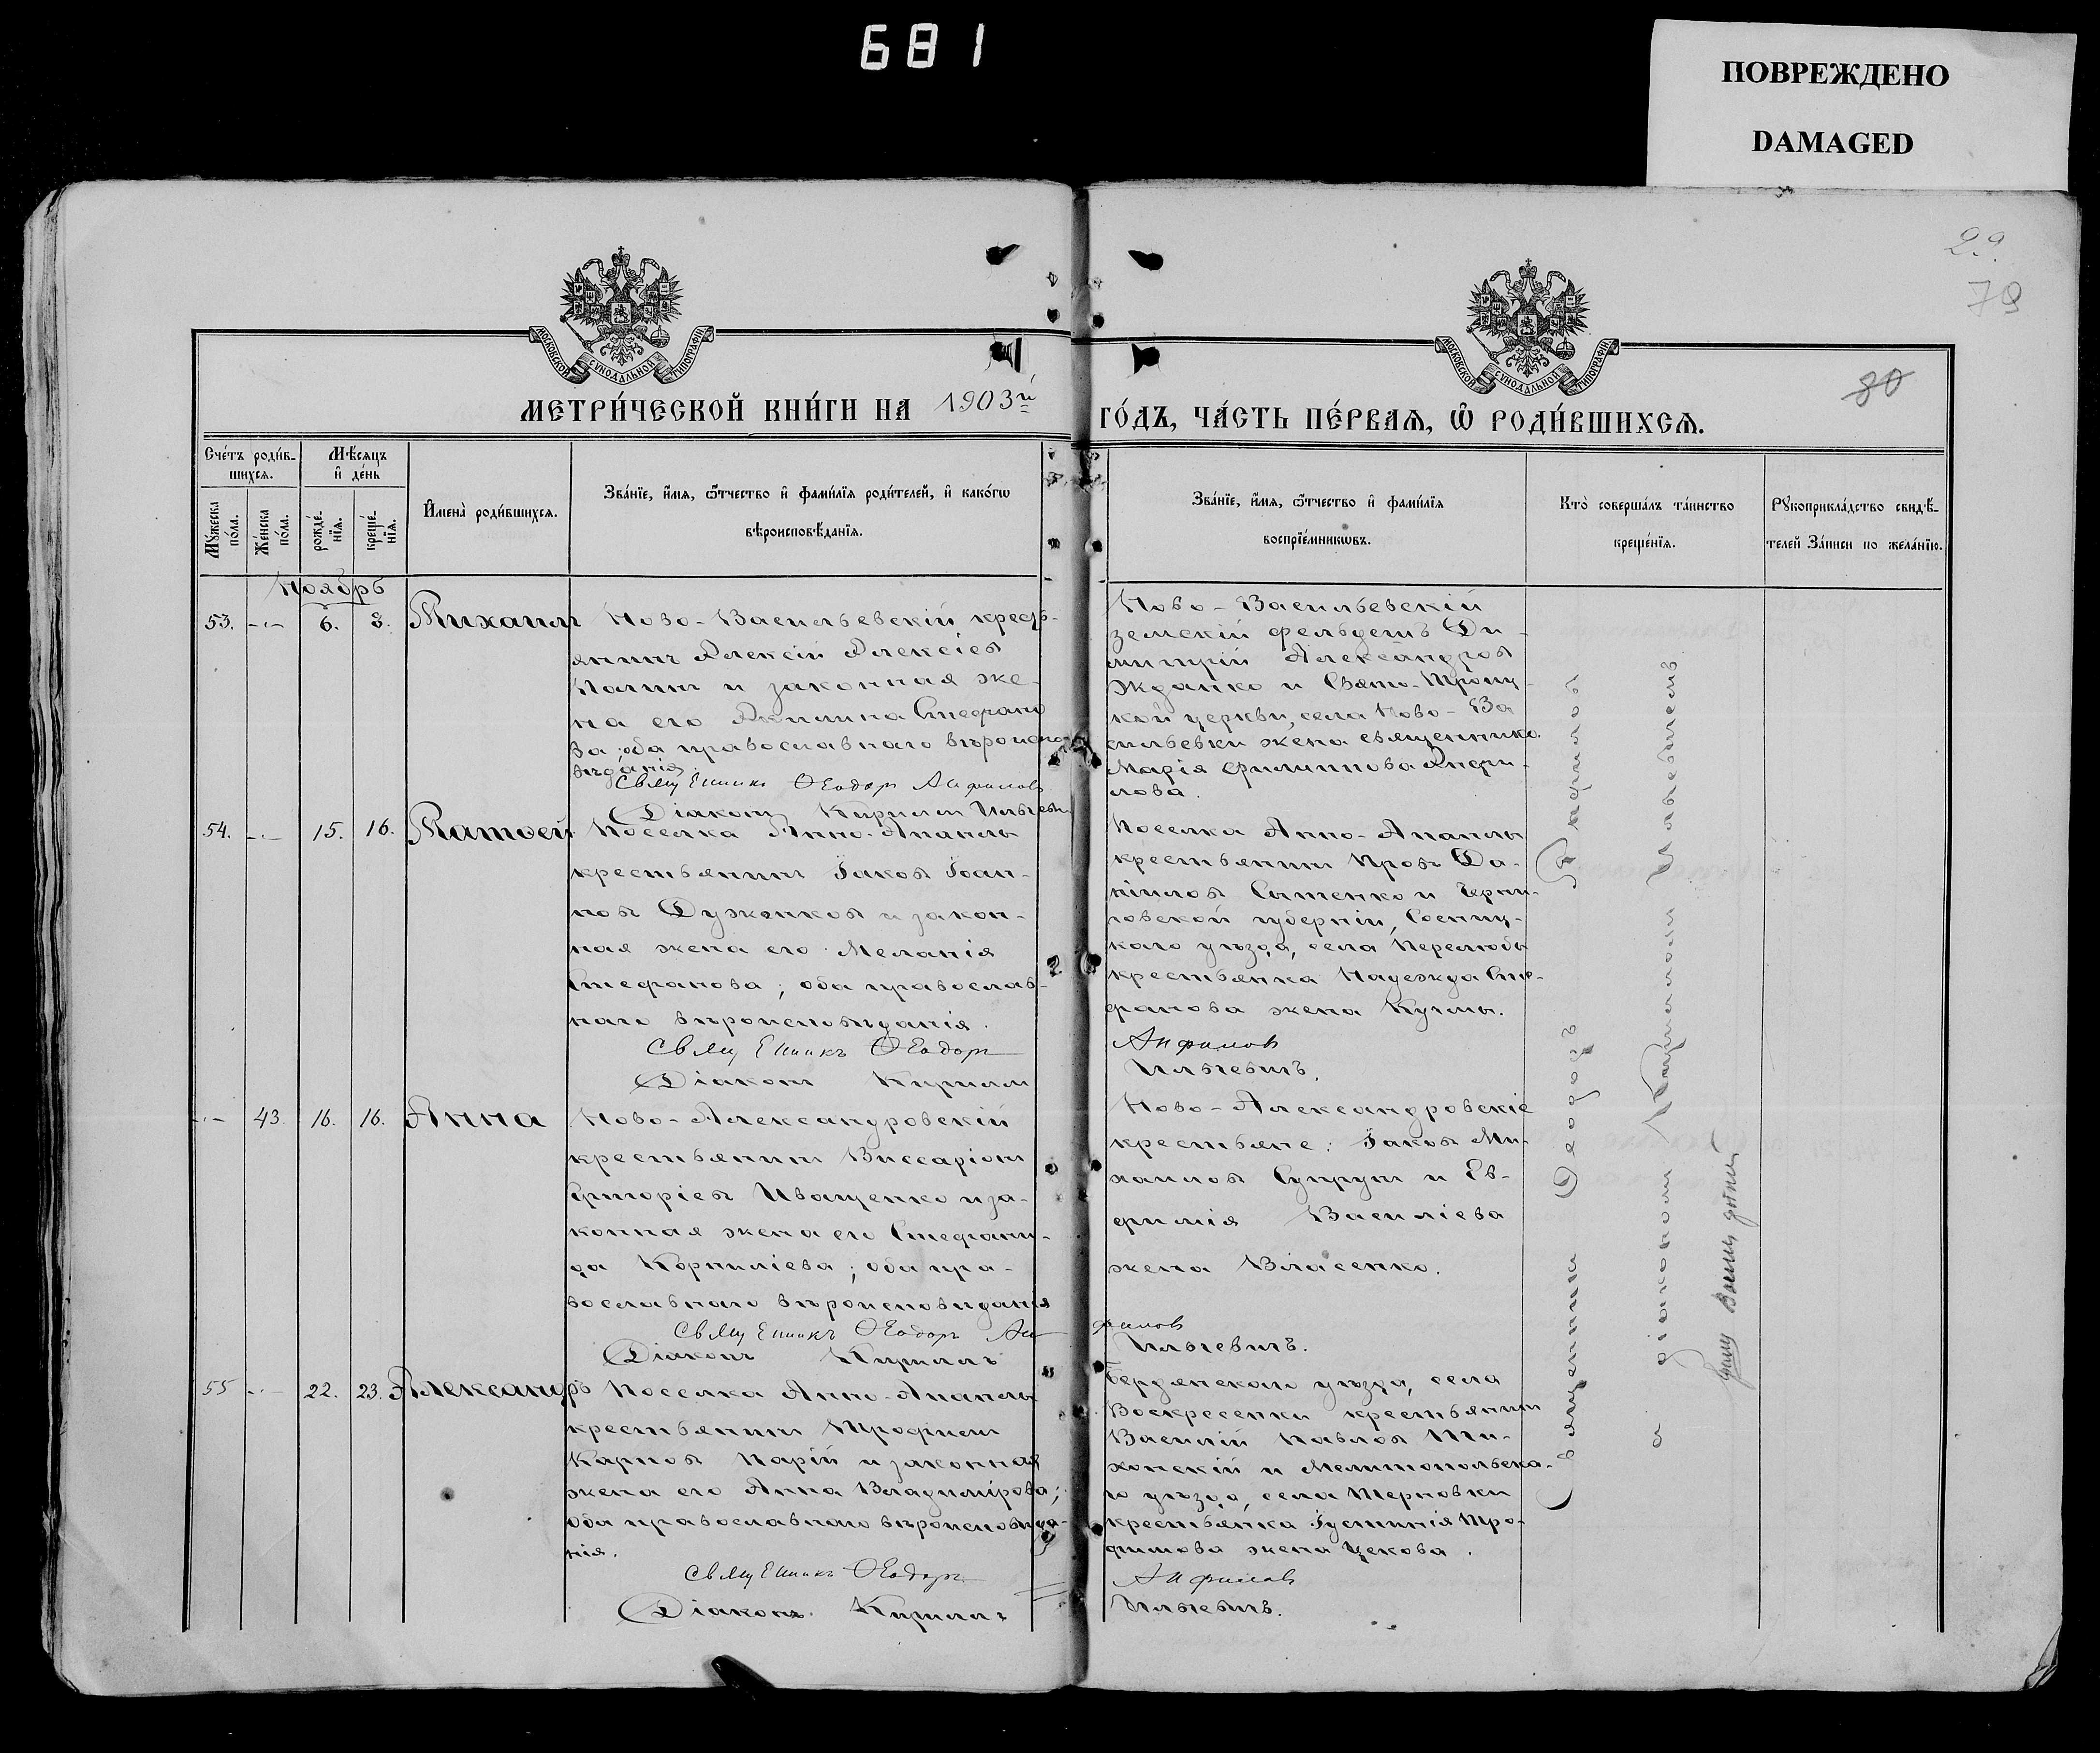 681
ПОВРЕЖДЕНО
DAMAGED
29.
79
80
МОСКОВСКОЙ СѴНОДАЛЬНОЙ ТИПОГРАФІИ
МОСКОВСКОЙ СѴНОДАЛЬНОЙ ТИПОГРАФІИ
МЕТРИ́ЧЕСКОЙ КНИ́ГИ НА 1903й
ГО́ДЪ, ЧА́СТЬ ПЕ́РВАѦ, Ѿ РОДИ́ВШИХСѦ.
Сче́тъ роди́в-
шихсѧ.
Мѣ́сѧцъ
и҆ де́нь
Мꙋ́жеска
по́ла.
Же́нска
по́ла.
рожде́-
нїѧ.
креще́-
нїѧ.
И҆мена̀ роди́вшихсѧ.
Зва́нїе, и҆́мѧ, ѻ҆́тчество и҆ фами́лїѧ роди́телей, и҆ како́гѡ
вѣроисповѣ́данїѧ.
Зва́нїе, и҆́мѧ, ѻ҆́тчество и҆ фами́лїѧ
воспрїе́мникѡвъ.
Кто̀ соверша́лъ та́инство
креще́нїѧ.
Рꙋкоприкла́дство свидѣ́-
телей за́писи по жела́нїю.
Ноябрь
53. -"- 6. 8. Михаилъ
Ново-Васильевскій кресть-
янинъ Алексій Алексіевъ
и законная же-
на его Акилина Стефано
ва; оба православнаго вѣроиспо
вѣданія.
Священникъ Ѳеодоръ Анфиловъ
Діаконъ Кириллъ Ильевичъ
Ново-Васильевскій
земскій фельдшеръ Ди-
митрій Александровъ
Жданко и Свято-Троиц-
кой церкви, села Ново-Ва
сильевки жена священника
Марія Филиппова Анфи-
лова.
54. -"- 15. 16. Матѳей
Поселка Анно-Апанлы
крестьянинъ Іаковъ Іоан-
новъ Дуженковъ и закон-
ная жена его Меланія
Стефанова; оба православ-
наго вѣроисповѣданія.
Священникъ Ѳеодоръ
Діаконъ Кириллъ
Поселка Анно-Апанлы
крестьянинъ Провъ Да-
ніиловъ Сытенко и Черни-
говской губерніи, Сосниц-
каго уѣзда, села Перелюбы
крестьянка Надежда Сте-
фанова жена Кучмы.
Анфиловъ
Ильевичъ.
-"- 43. 16. 16. Анна
Ново-Александровскій
крестьянинъ Виссаріонъ
Григоріевъ Иващенко и за-
конная жена его Стефани-
да Корниліева; оба пра-
вославнаго вѣроисповѣданія
Священникъ Ѳеодоръ Ан
Діаконъ Кириллъ
Ново-Александровскіе
крестьяне: Іаковъ Ми-
хаиловъ Супрунъ и Ев-
фимія Василіева
жена Власенко.
филовъ
Ильевичъ.
55 -"- 22. 23. Александръ
Поселка Анно-Апанлы
крестьянинъ Трофимъ
Карповъ Парій и законная
жена его Анна Владимірова;
оба православнаго вѣроисповѣда-
нія.
Священникъ Ѳеодоръ
Діаконъ Кириллъ
Бердянскаго уѣзда, села
Воскресенки крестьянинъ
Василій Павловъ Ти-
хонскій и Мелитопольска-
го уѣзда, села Терновки
крестьянка Іустинія Тро-
фимова жена Цекова.
Анфиловъ
Ильевичъ.
Священникъ Ѳеодоръ Анфиловъ
съ діакономъ Кирилломъ Ильевичемъ